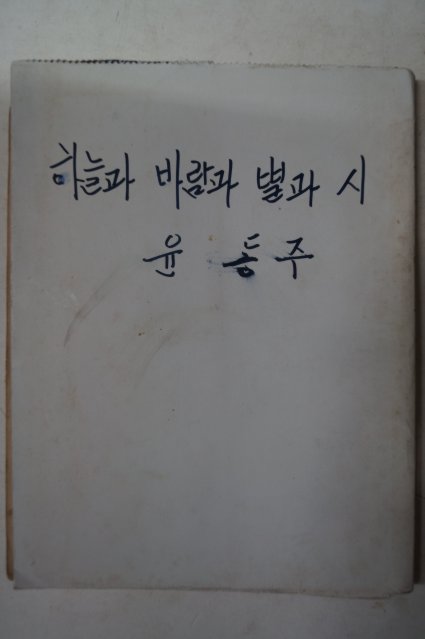 하늘과 바람과 별과 시
윤 동 주